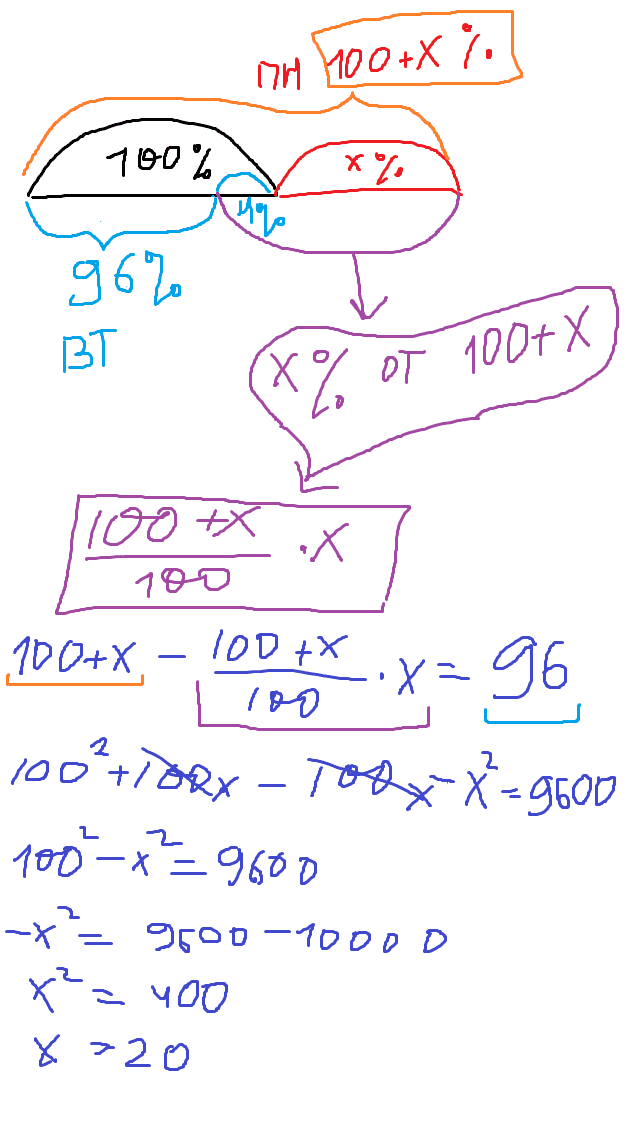 ПН 100+x %
100% x%
4%
96%
ВТ
x% от 100+x
100+x/100 · x
100+x − 100+x/100 · x = 96
100²+100x − 100x − x² = 9600
100² − x² = 9600
−x² = 9600 − 10000
x² = 400
x = 20